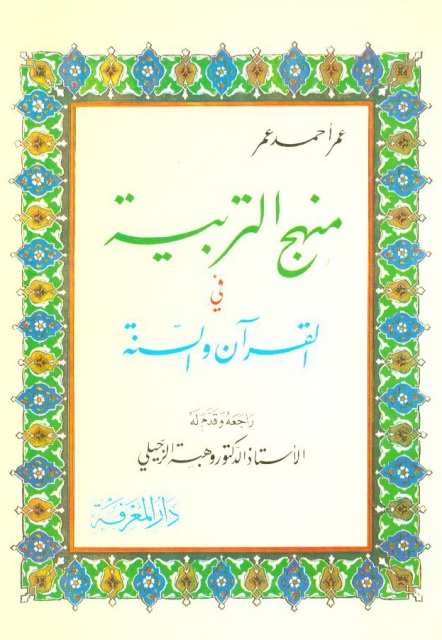 عمر أحمد عمر
منهج التربية
في
القرآن والسنّة
رَاجَعَهُ وَقَدَّمَ لَهُ
الأستاذ الدكتور وهبة الزحيلي
دَار المَعْرفَة